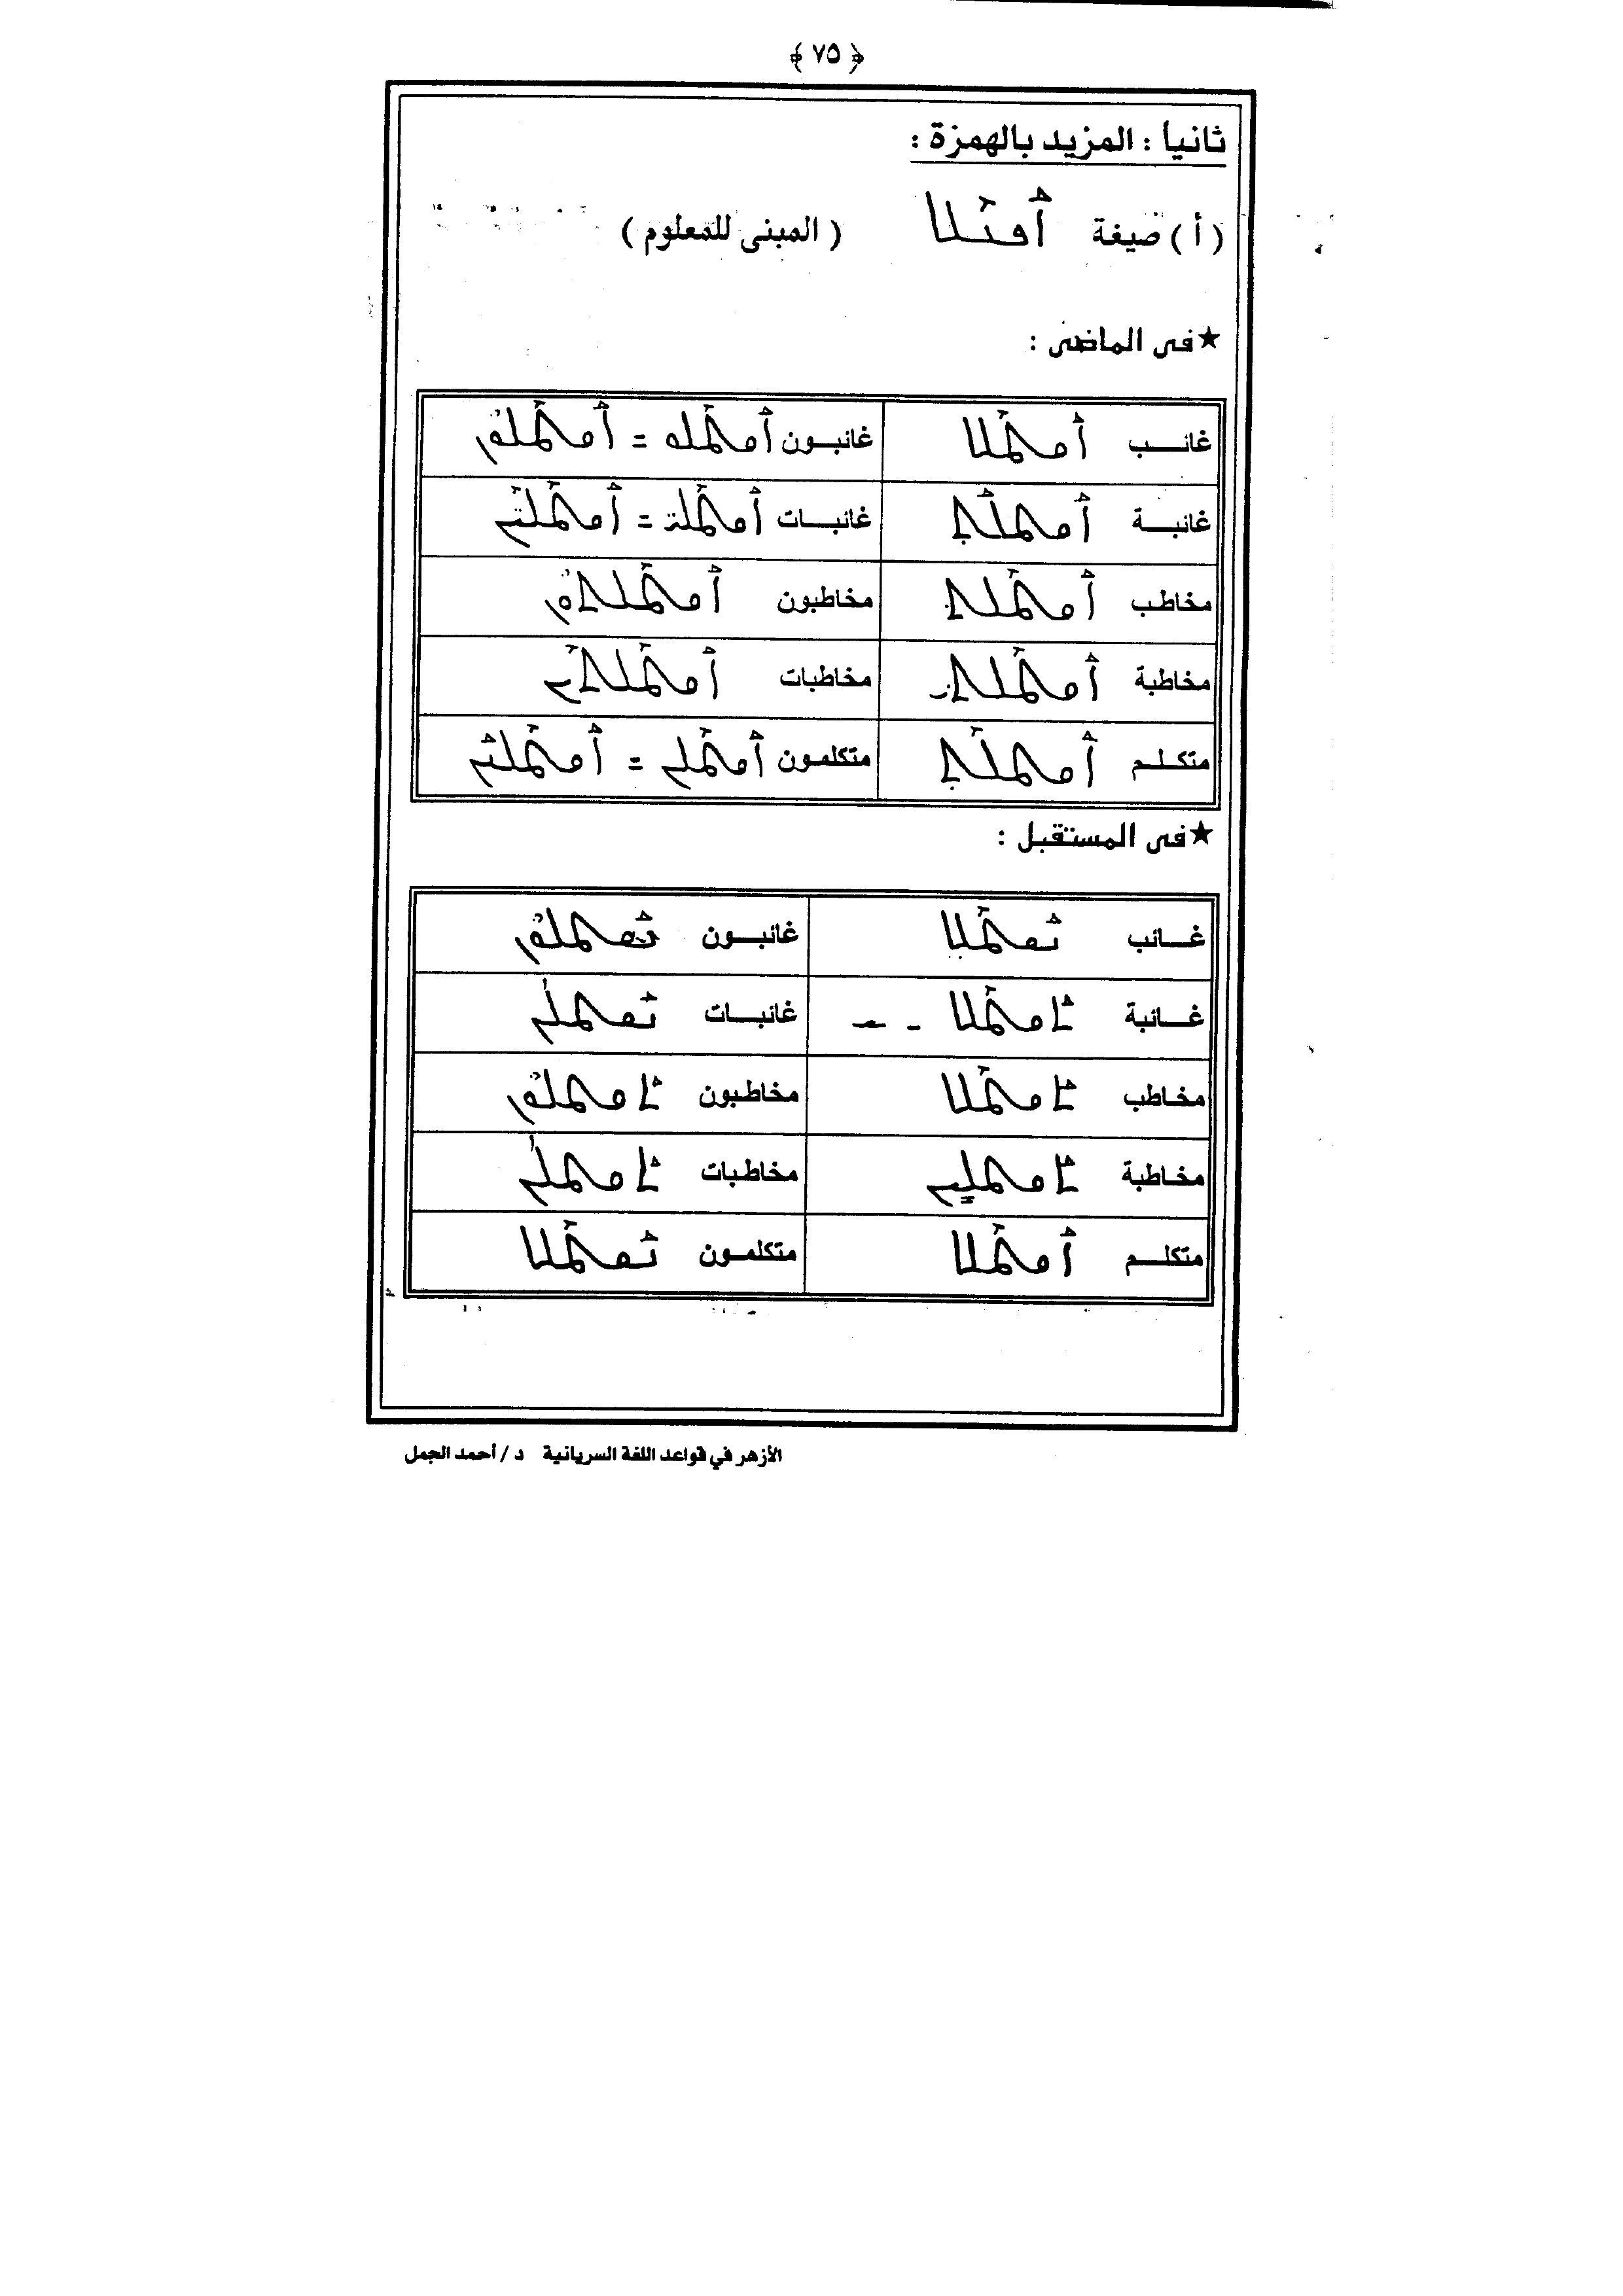 ﴿ ٧٥ ﴾
ثانياً : المزيد بالهمزة :
( أ ) صيغة ܐܰܦܥܶܠ ( المبنى للمعلوم )
★ فى الماضى :
غائب ܐܰܩܛܶܠ غائبون ܐܰܩܛܶܠܘ = ܐܰܩܛܶܠܘܢ
غائبة ܐܰܩܛܠܰܬ݂ غائبات ܐܰܩܛܶܠ̈ܝ = ܐܰܩܛܶܠܶܝܢ
مخاطب ܐܰܩܛܶܠܬ݁ مخاطبون ܐܰܩܛܶܠܬܘܢ
مخاطبة ܐܰܩܛܶܠܬܝ مخاطبات ܐܰܩܛܶܠܬܶܝܢ
متكلم ܐܰܩܛܠܶܬ݂ متكلمون ܐܰܩܛܶܠܢ = ܐܰܩܛܶܠܢܰܢ
★ فى المستقبل :
غائب ܢܰܩܛܶܠ غائبون ܢܰܩܛܠܘܢ
غائبة ܬܰܩܛܶܠ - ـ غائبات ܢܰܩܛܠܳܢ
مخاطب ܬܰܩܛܶܠ مخاطبون ܬܰܩܛܠܘܢ
مخاطبة ܬܰܩܛܠܝܢ مخاطبات ܬܰܩܛܠܳܢ
متكلم ܐܰܩܛܶܠ متكلمون ܢܰܩܛܶܠ
الأزهر في قواعد اللغة السريانية د / أحمد الجمل